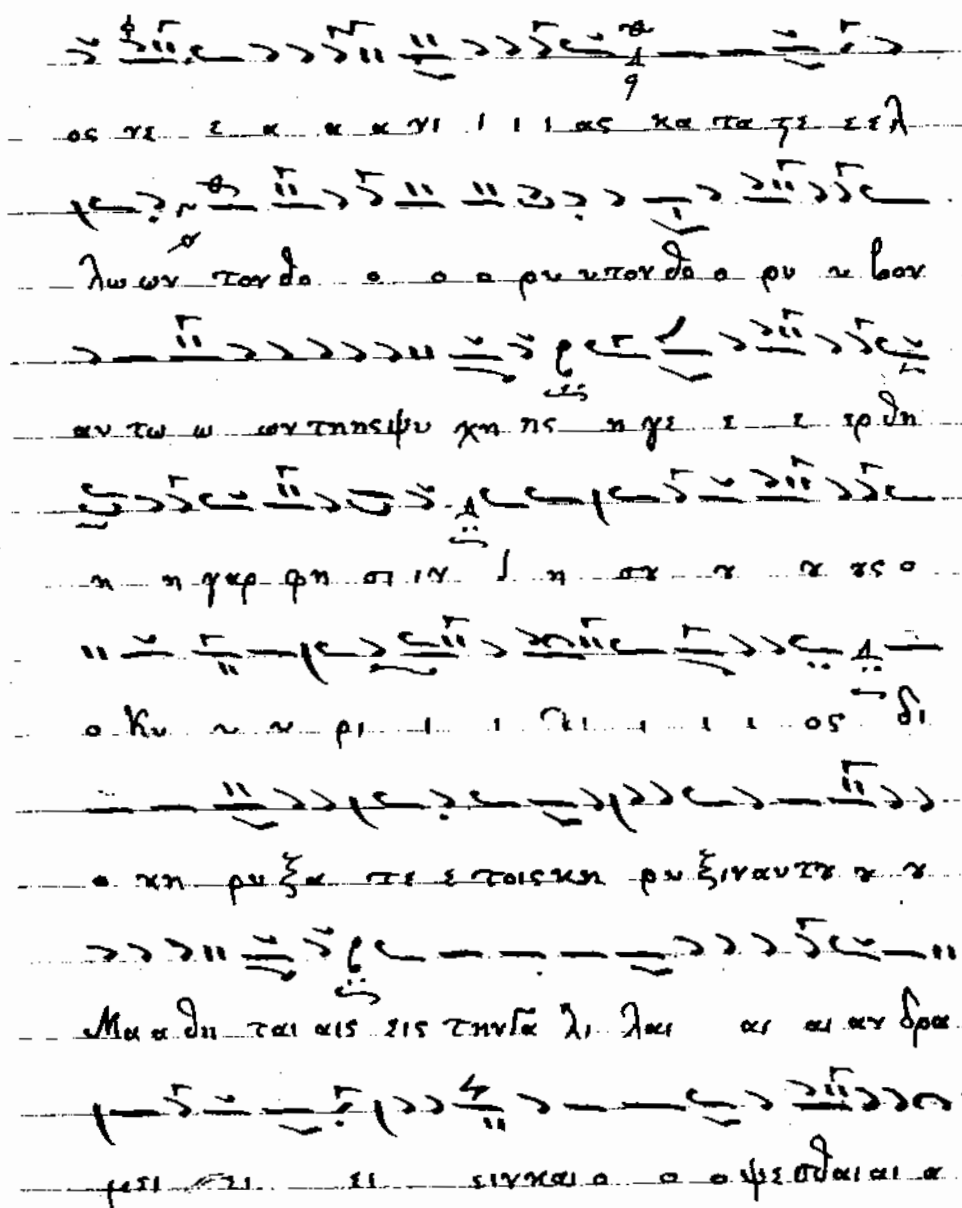 ος νε ε α α α νι ι ι ι ας κα τα τε ε ελ
λω ων τον θο ο ο ο ρυ υ τον θο ο ρυ υ βον
αυ τω ω ων της ψυ χη ης η γε ε ε ερ θη
η η γαρ φη σι ιν Ι η σου ου ου ους ο
ο Κυ υ υ ρι ι ι ι ι ι ι ος δι
ο κη ρυ ξα τε ε τοις κη ρυ ξιν αυ του ου ου
Μα α θη ται αις εις την Γα λι λαι αι αι αν δρα
μει ει ει ειν και ο ο ο ψε σθαι αι α